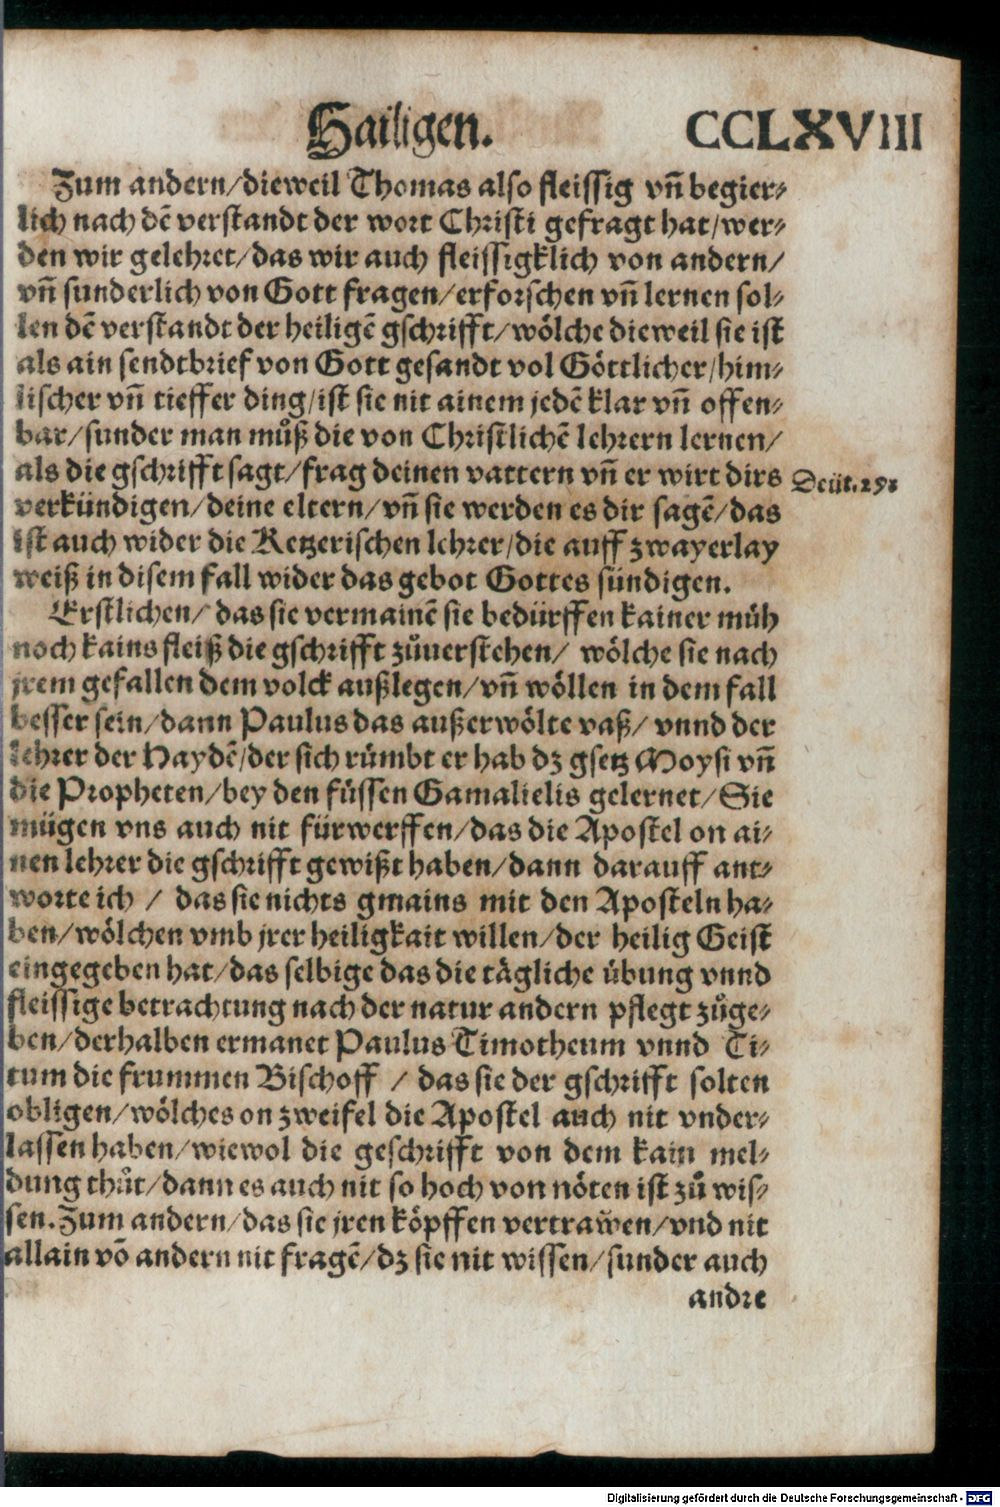 Hailigen. CCLXVIII
Zum andern/dieweil Thomas also fleissig vñ begier-
lich nach dē verstandt der wort Christi gefragt hat/wer-
den wir gelehret/das wir auch fleissigklich von andern/
vñ sunderlich von Gott fragen/erforschen vñ lernen sol-
len dē verstandt der heiligē gschrifft/wölche dieweil sie ist
als ain sendtbrief von Gott gesandt vol Göttlicher/him-
lischer vñ tieffer ding/ist sie nit ainem jedē klar vñ offen-
bar/sunder man můß die von Christlichē lehrern lernen/
als die gschrifft sagt/frag deinen vattern vñ er wirt dirs
Deüt.
verkündigen/deine eltern/vñ sie werden es dir sagē/das
ist auch wider die Ketzerischen lehrer/die auff zwayerlay
weiß in disem fall wider das gebot Gottes sündigen.
Erstlichen/ das sie vermainē sie bedürffen kainer müh
noch kains fleiß die gschrifft zůuerstehen/ wölche sie nach
jrem gefallen dem volck außlegen/vñ wöllen in dem fall
besser sein/dann Paulus das außerwölte vaß/ vnnd der
lehrer der Haydē/der sich rümbt er hab dz gsetz Moysi vñ
die Propheten/bey den füssen Gamalielis gelernet/Sie
mügen vns auch nit fürwerffen/das die Apostel on ai-
nen lehrer die gschrifft gewißt haben/dann darauff ant-
worte ich / das sie nichts gmains mit den Aposteln ha-
ben/wölchen vmb jrer heiligkait willen/der heilig Geist
eingegeben hat/das selbige das die tägliche übung vnnd
fleissige betrachtung nach der natur andern pflegt zůge-
ben/derhalben ermanet Paulus Timotheum vnnd Ti-
tum die frummen Bischoff / das sie der gschrifft solten
obligen/wölches on zweifel die Apostel auch nit vnder-
lassen haben/wiewol die geschrifft von dem kain mel-
dung thůt/dann es auch nit so hoch von nöten ist zů wis-
sen. Zum andern/das sie jren köpffen vertrawen/vnd nit
allain võ andern nit fragē/dz sie nit wissen/sunder auch
andre
Digitalisierung gefördert durch die Deutsche Forschungsgemeinschaft - DFG